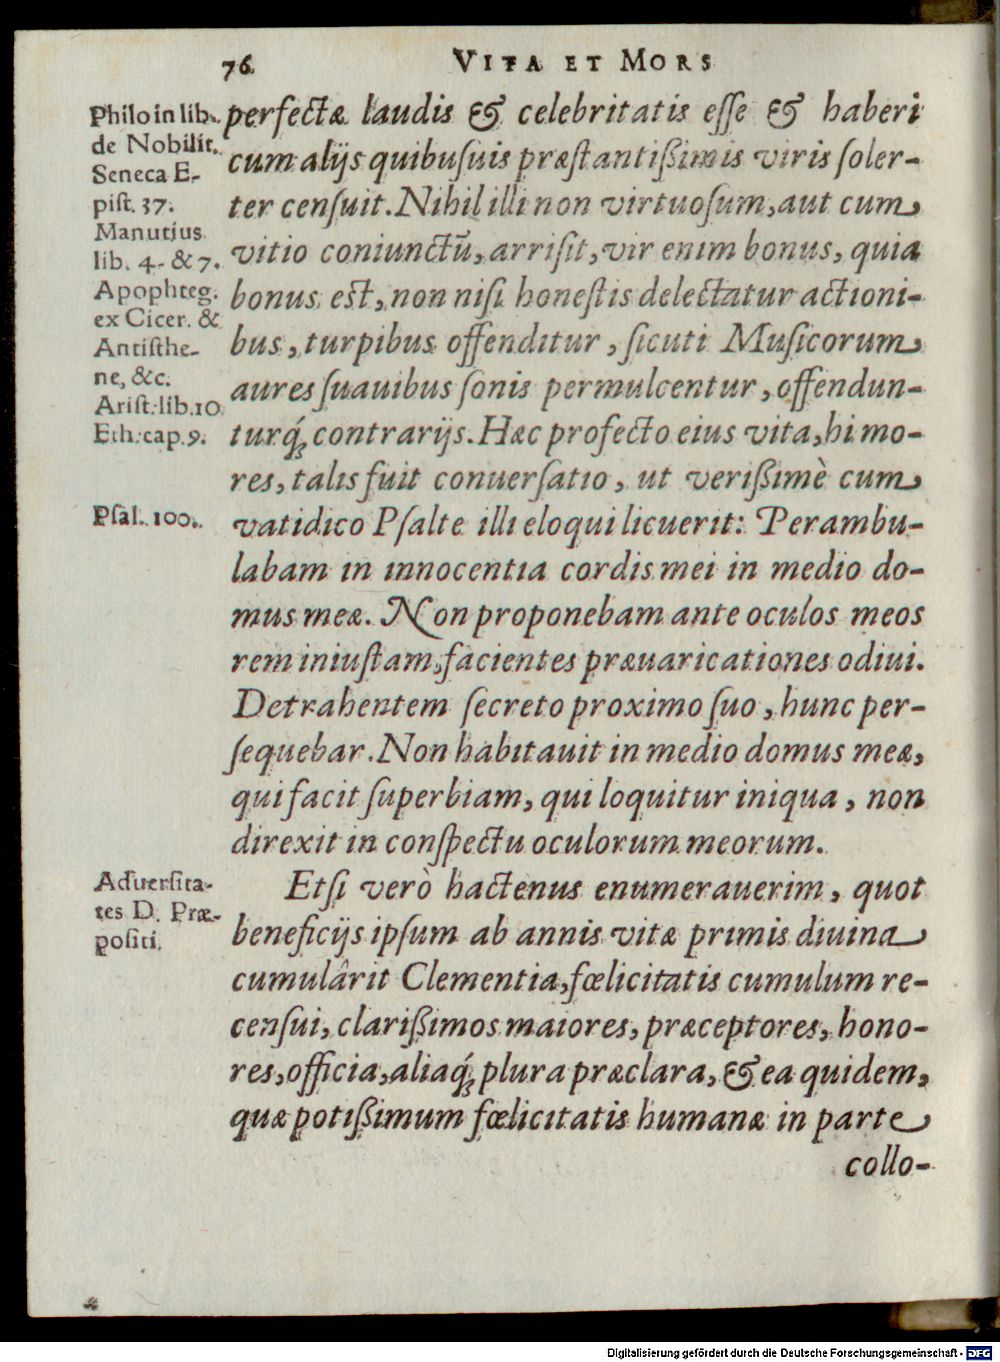 76. VITA ET MORS
Philo in lib.
de Nobilit.
Seneca E-
pist. 37.
Manutius
lib. 4. & 7.
Apophteg.
ex Cicer. &
Antisthe-
ne, &c.
Arist. lib. 10
Eth. cap. 9.
perfectæ laudis & celebritatis eſſe & haberi
cum alijs quibuſuis præſtantißimis viris ſoler-
ter cenſuit. Nihil illi non virtuoſum, aut cum
vitio coniunctū, arriſit, vir enim bonus, quia
bonus est, non niſi honeſtis delectatur actioni-
bus, turpibus offenditur, ſicuti Muſicorum
aures ſuauibus ſonis permulcentur, offendun-
turq́; contrarijs. Hæc profecto eius vita, hi mo-
res, talis fuit conuerſatio, ut verißimè cum
Pſal. 100.
vatidico Pſalte illi eloqui licuerit: Perambu-
labam in innocentia cordis mei in medio do-
mus meæ. Non proponebam ante oculos meos
rem iniuſtam, facientes præuaricationes odiui.
Detrahentem ſecreto proximo ſuo, hunc per-
ſequebar. Non habitauit in medio domus meæ,
qui facit ſuperbiam, qui loquitur iniqua, non
direxit in conſpectu oculorum meorum.
Aduerſita-
tes D. Præ-
poſiti.
Etſi verò hactenus enumerauerim, quot
beneficijs ipſum ab annis vitæ primis diuina
cumulârit Clementia, fœlicitatis cumulum re-
cenſui, clarißimos maiores, præceptores, hono-
res, officia, aliaq́; plura præclara, & ea quidem,
quæ potißimum fœlicitatis humanæ in parte
collo-
Digitalisierung gefördert durch die Deutsche Forschungsgemeinschaft - DFG